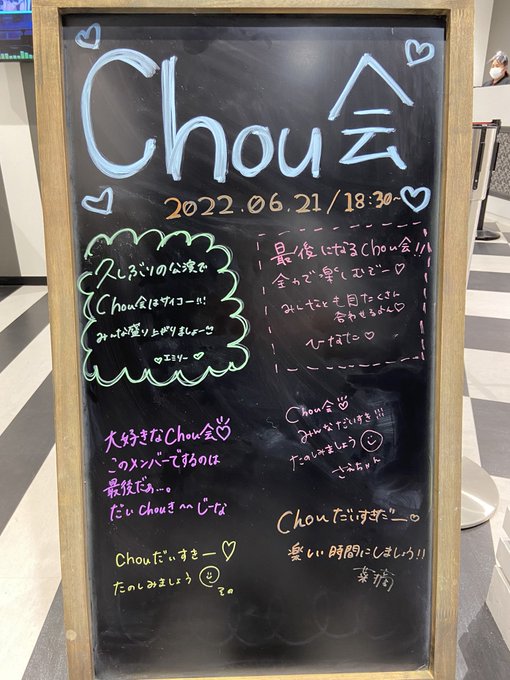 Chou会
2022.06.21/18:30~
久しぶりの公演で
Chou会はサイコー!!!
みんな盛り上がりましょー
エミリー
最後になるChou会!!
全力で楽しむぞー♡
みなさんとも目たくさん
合わせるよん♡
ひなた♡
大好きなChou会♡
このメンバーでするのは
最後だぁ…。
だいChouき~~じーな
Chou会
みんなだいすき!!!
たのしみましょう
さえちゃん
Chouだいすきー♡
たのしみましょう
Chouだいすきだー♡
楽しい時間にしましょう!!